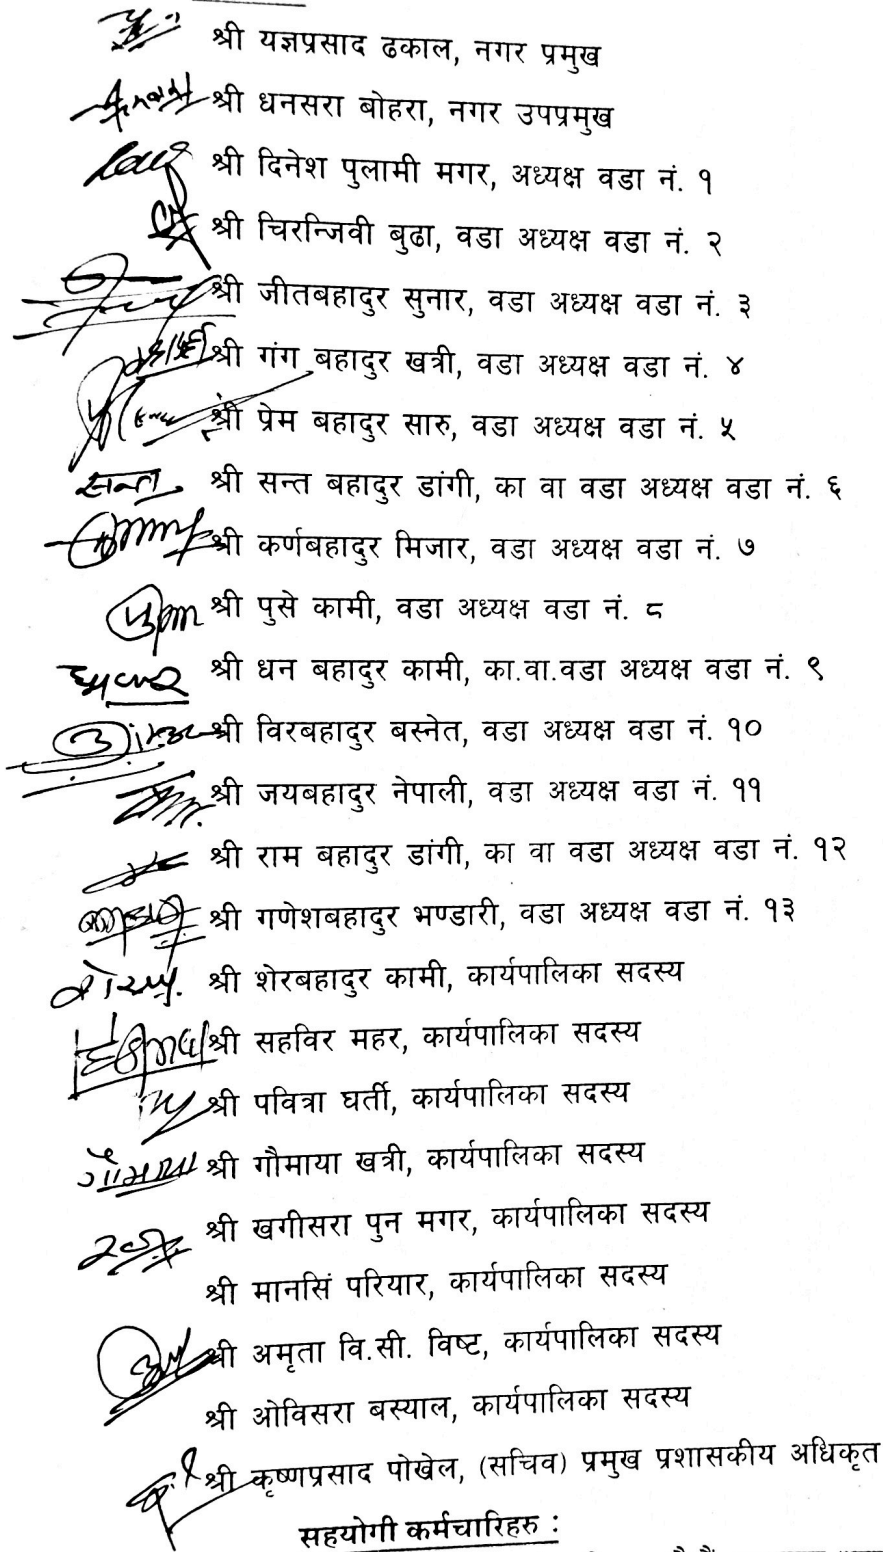 श्री यज्ञप्रसाद ढकाल, नगर प्रमुख
श्री धनसरा बोहरा, नगर उपप्रमुख
श्री दिनेश पुलामी मगर, अध्यक्ष वडा नं. १
श्री चिरन्जिवी बुढा, वडा अध्यक्ष वडा नं. २
श्री जीतबहादुर सुनार, वडा अध्यक्ष वडा नं. ३
श्री गंग बहादुर खत्री, वडा अध्यक्ष वडा नं. ४
श्री प्रेम बहादुर सारु, वडा अध्यक्ष वडा नं. ५
सन्त श्री सन्त बहादुर डांगी, का वा वडा अध्यक्ष वडा नं. ६
श्री कर्णबहादुर मिजार, वडा अध्यक्ष वडा नं. ७
श्री पुसे कामी, वडा अध्यक्ष वडा नं. ८
श्री धन बहादुर कामी, का.वा.वडा अध्यक्ष वडा नं. ९
श्री विरबहादुर बस्नेत, वडा अध्यक्ष वडा नं. १०
श्री जयबहादुर नेपाली, वडा अध्यक्ष वडा नं. ११
श्री राम बहादुर डांगी, का वा वडा अध्यक्ष वडा नं. १२
श्री गणेशबहादुर भण्डारी, वडा अध्यक्ष वडा नं. १३
श्री शेरबहादुर कामी, कार्यपालिका सदस्य
श्री सहविर महर, कार्यपालिका सदस्य
श्री पवित्रा घर्ती, कार्यपालिका सदस्य
गौमाया श्री गौमाया खत्री, कार्यपालिका सदस्य
श्री खगीसरा पुन मगर, कार्यपालिका सदस्य
श्री मानसिं परियार, कार्यपालिका सदस्य
श्री अमृता वि.सी. विष्ट, कार्यपालिका सदस्य
श्री ओविसरा बस्याल, कार्यपालिका सदस्य
श्री कृष्णप्रसाद पोखेल, (सचिव) प्रमुख प्रशासकीय अधिकृत
सहयोगी कर्मचारिहरु :